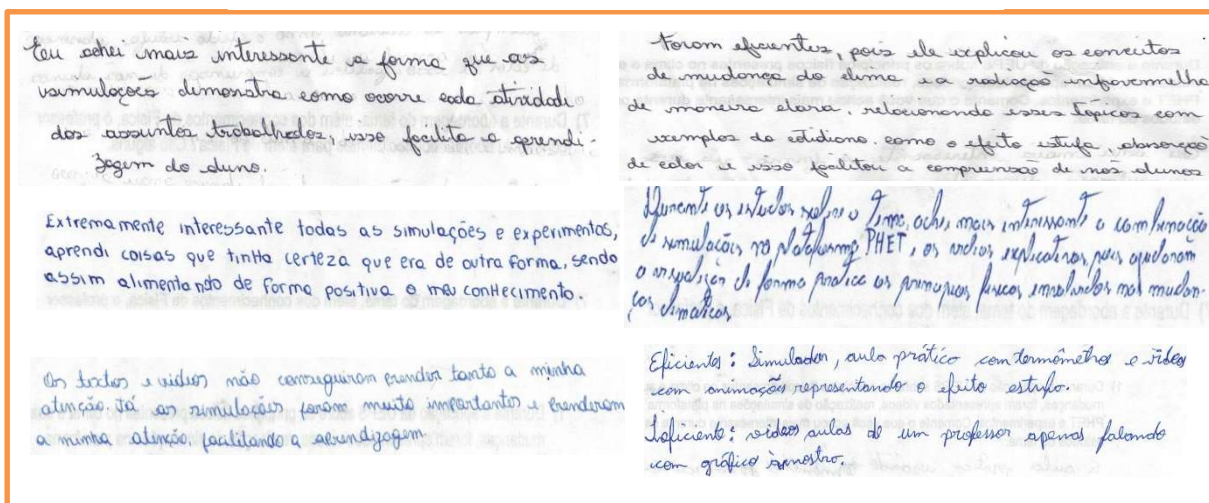 Eu achei mais interessante a forma que as
simulações demonstra como ocorre cada atividade
dos assuntos trabalhados, isso facilita a aprendi-
zagem do aluno.
Extremamente interessante todas as simulações e experimentos,
aprendi coisas que tinha certeza que era de outra forma, sendo
assim alimentando de forma positiva o meu conhecimento.
Os textos e videos não conseguiram prender tanto a minha
atenção. Já as simulações foram muito importantes e prenderam
a minha atenção facilitando a aprendizagem.
Foram eficientes, pois ele explicou os conceitos
de mudança do clima e a radiação infravermelha
de maneira relacionando esses tópicos com
exemplos do cotidiano. como o efeito estufa, absorção
de calor e isso facilitou a compreensão de nós alunos
Durante os estudos sobre o tema, achei mais interessante a combinação
de simulações na plataforma PHET, os vídeos explicativos, pois ajudaram
a visualização de forma prática os principios fisicos envolvidos nas mudan-
ças climáticas.
7) Durante a abordagem do tema, além dos conhecimentos de Física, o professor
Eficientes: Simulador, aula prática com termômetros e vídeos
com animação, representando o efeito estufa.
Ineficiente: vídeos aulas de um professor apenas falando
com gráfico amostra.